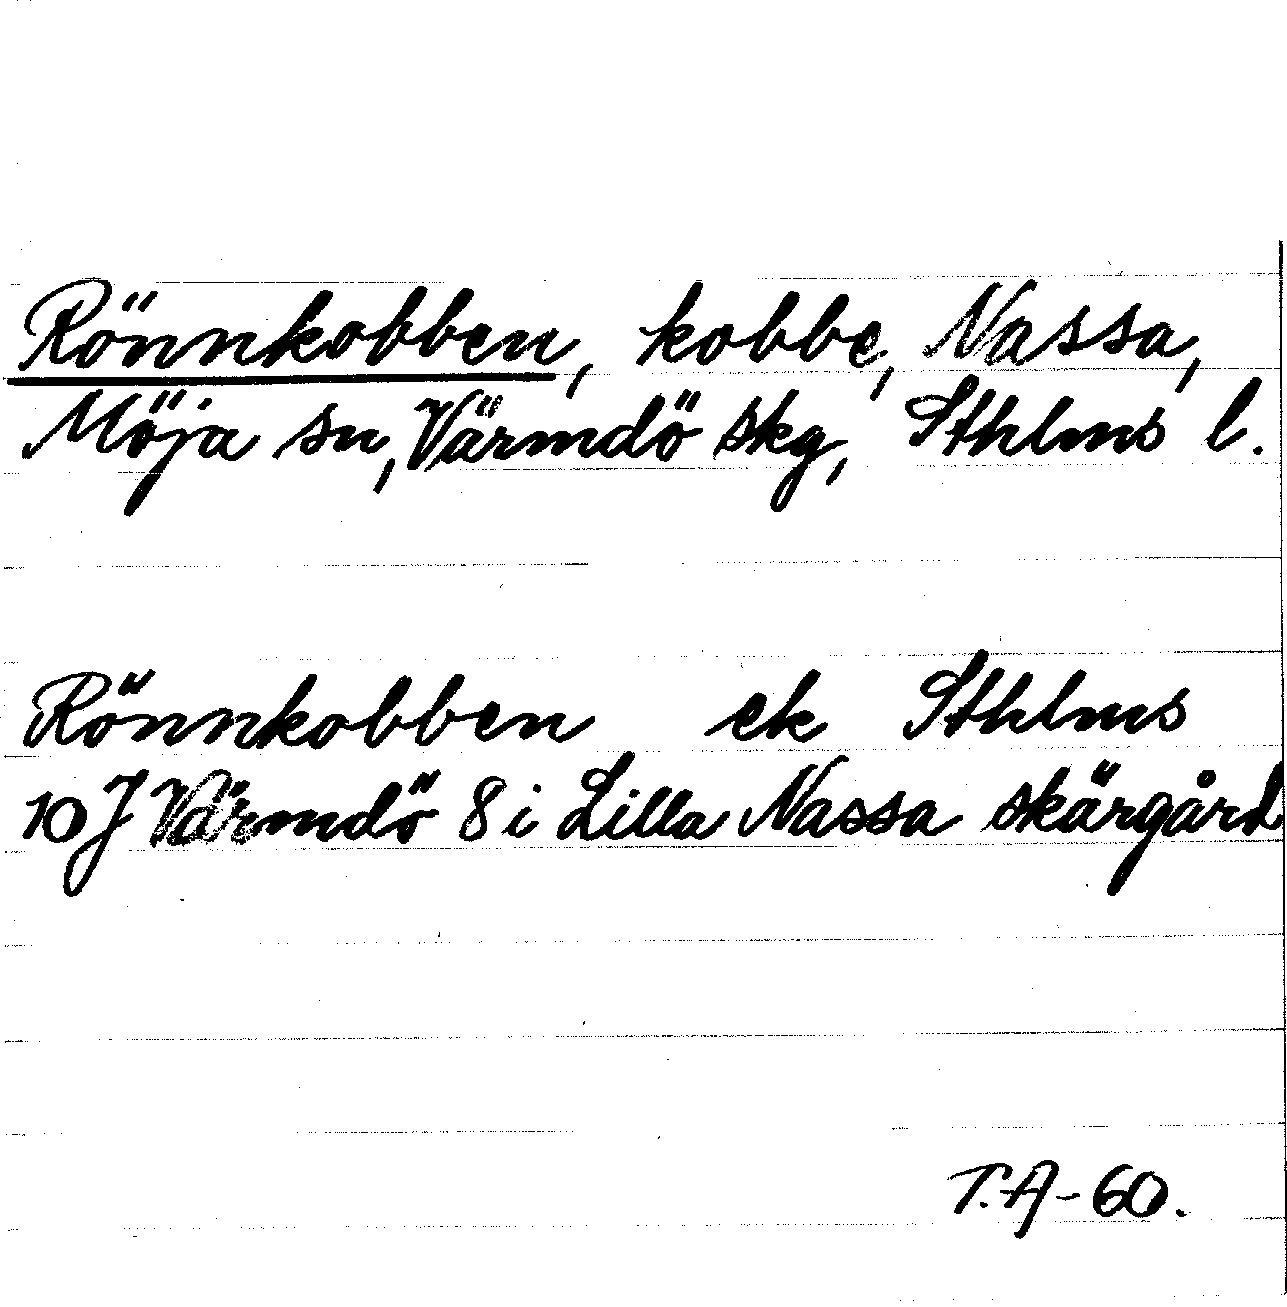 Rönnkobben, kobbe, Nassa,
Möja sn, Värmdö skg, Sthlms l.
Rönnkobben ek Sthlms
10J Värmdö 8 i Lilla Nassa skärgård
T.A-60.